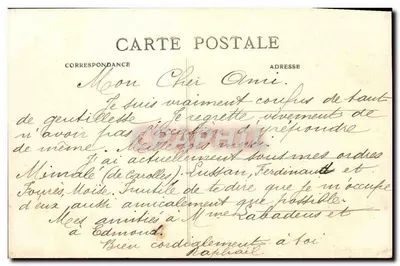 CARTE POSTALE
CORRESPONDANCE
ADRESSE
Mon Cher Ami.
Je suis vraiment confus de tant
de gentillesse. Je regrette vivement de
n'avoir pas répondre
de même.
J'ai actuellement sous mes ordres
Mimale (de Carolles) Lussan, Ferdinand et
Moïse. Inutile de te dire que je m'occupe
d'eux aussi amicalement que possible.
Mes amitiés à Mme Labadens et
à Edmond.
Bien cordialement à toi
Raphaël